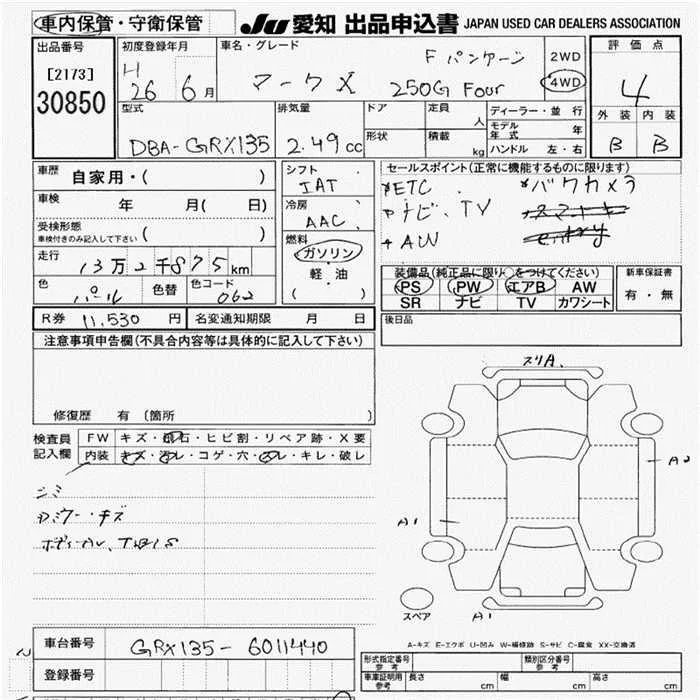 車内保管・守衛保管
JU 愛知 出品申込書 JAPAN USED CAR DEALERS ASSOCIATION
出品番号
[2173]
30850
初度登録年月
H 26 6月
車名・グレード
マークX
F パッケージ
250G Four
2WD
4WD
評価点
4
外装 内装
B B
型式
DBA-GRX135
排気量
2.49cc
ドア
形状
定員
人
積載
kg
ディーラー・並行
モデル年式
年
ハンドル 左・右
車歴 自家用・( )
車検 年 月( 日)
受検形態
車検付きのみ記入して下さい ( )
走行
13万2千875km
色
パール
色替
色コード
062
シフト
IAT
冷房
AAC
燃料
ガソリン
軽・油
( )
セールスポイント(正常に機能するものに限り)
*ETC
*バックカメラ
*ナビ、TV
*スマートキー
*AW
entry
装備品(純正品に限り○をつけてください)
PS PW エアB AW
SR ナビ TV カワシート
新車保証書
有・無
R券 11,530 円
名変通知期限 月 日
後日品
注意事項申告欄(不具合内容等は具体的に記入して下さい)
修復歴 有 〔箇所 〕
検査員
記入欄
FW キズ・飛石・ヒビ割・リペア跡・X要
内装 キズ・汚レ・コゲ・穴・スレ・キレ・破レ
シミ
スリA.
A2
A1
スペア
A1
A-キズ E-エクボ U-凹み W-補修跡 S-サビ C-腐食 XX-交換済
車台番号
GRX135-6011440
登録番号
形式指定番号
参考
類別区分番号
参考
車庫証明用
参考
長さ cm
幅 cm
高さ cm